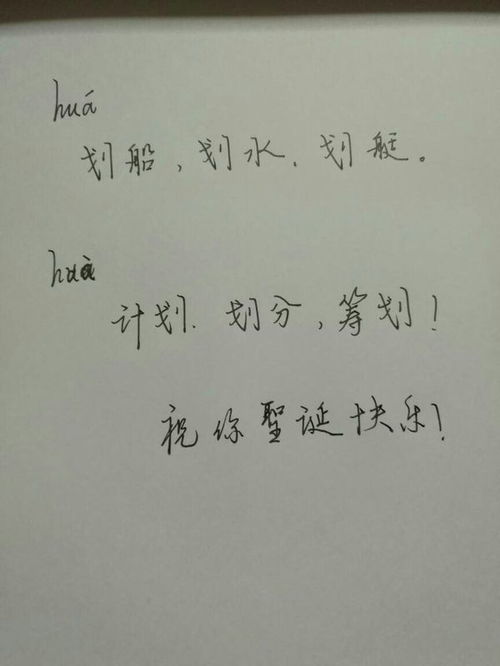 huá
划船，划水、划艇。
huà
计划、划分，筹划！
祝你聖诞快乐！